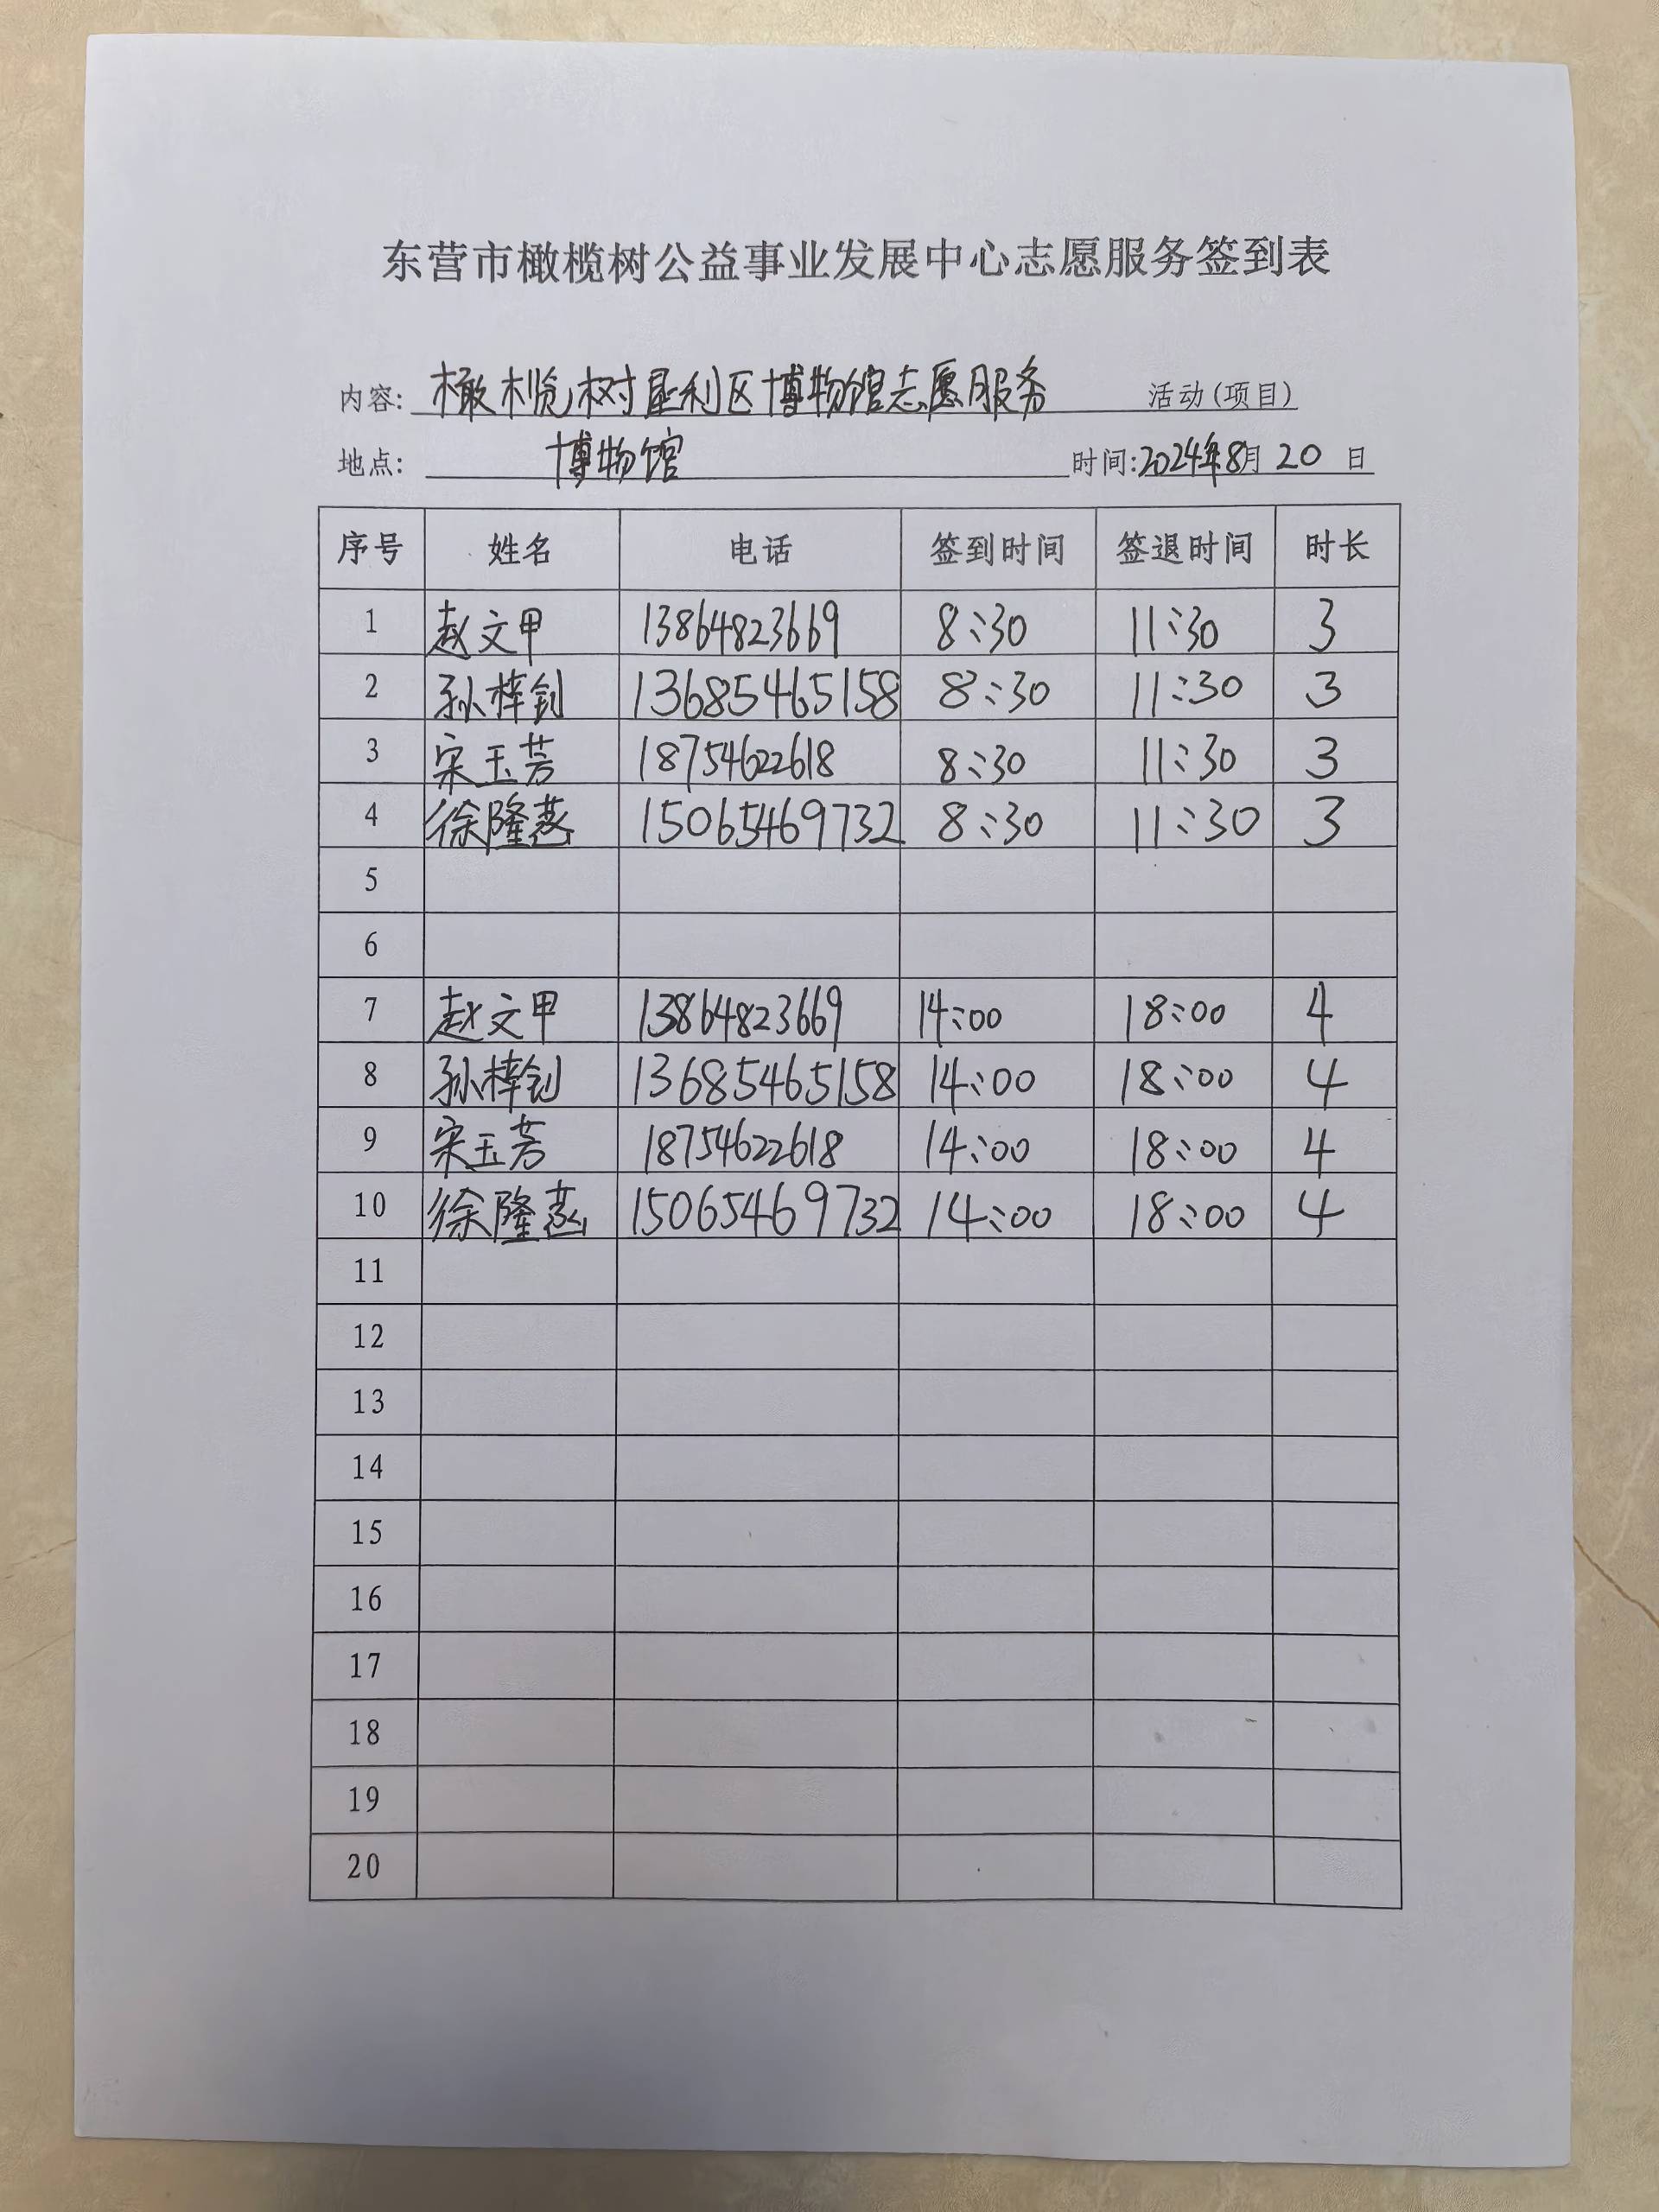 东营市橄榄树公益事业发展中心志愿服务签到表
内容: 橄榄树垦利区博物馆志愿服务 活动(项目)
地点: 博物馆 时间:2024年8月20日
序号 姓名 电话 签到时间 签退时间 时长
1 赵文甲 13864823669 8:30 11:30 3
2 孙梓钊 13685465158 8:30 11:30 3
3 宋玉芳 18754622618 8:30 11:30 3
4 徐隆 15065469732 8:30 11:30 3
5
6
7 赵文甲 13864823669 14:00 18:00 4
8 孙梓钊 13685465158 14:00 18:00 4
9 宋玉芳 18754622618 14:00 18:00 4
10 徐隆 15065469732 14:00 18:00 4
11
12
13
14
15
16
17
18
19
20